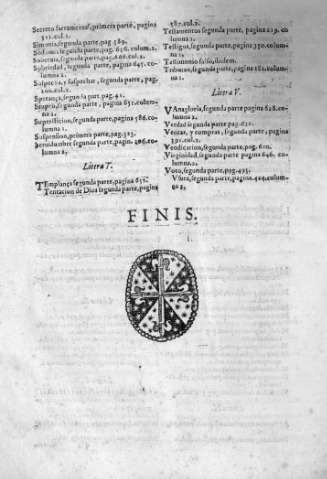 Secreto sacramental, primera parte, pagina
311.col.2.
Simonia, segunda parte, pag 589.
Sodomia, segunda parte, pag. 656. colum.
Soberuia, segunda parte, pag. col.2.
Sobriedad, segunda parte, pagin 645. co-
lumna 2.
Sospecha, y sospechar, segunda parte, pag.
col.2.
Sperança, segunda part. pag. 41.
Stupro, segunda parte, pagina 651. colum-
na 2.
Superstition, segunda parte, pagina 586. co-
lumna 1.
Suspension, primera parte, pag. 323.
segunda parte, pagin. 206. co-
lumna 2.
Litera T.
TEmplança segunda parte, pagina 631.
Tentacion de Dios segunda parte, pagina
587. col.2.
Testamentos segunda parte, pagina 219. co-
lumna 1.
Testigos, segunda parte, pagina 330. colum-
na 1.
Testimonio falso, ibidem.
Tributos, segunda parte, pagina 181. colum-
na 1.
Litera V.
VAnagloria, segunda parte pagina 628. co-
lumna 2.
Verdad segunda parte pag. 621.
Ventas, y compras, segunda parte, pagina
391. col.2.
Vendicacion, segunda parte, pag. 620.
Virginidad, segunda parte pagina 646. co-
lumna 2.
Voto, segunda parte, pag. 493.
Vsura, segunda parte, pagina 424, colum-
na 2,
FINIS.